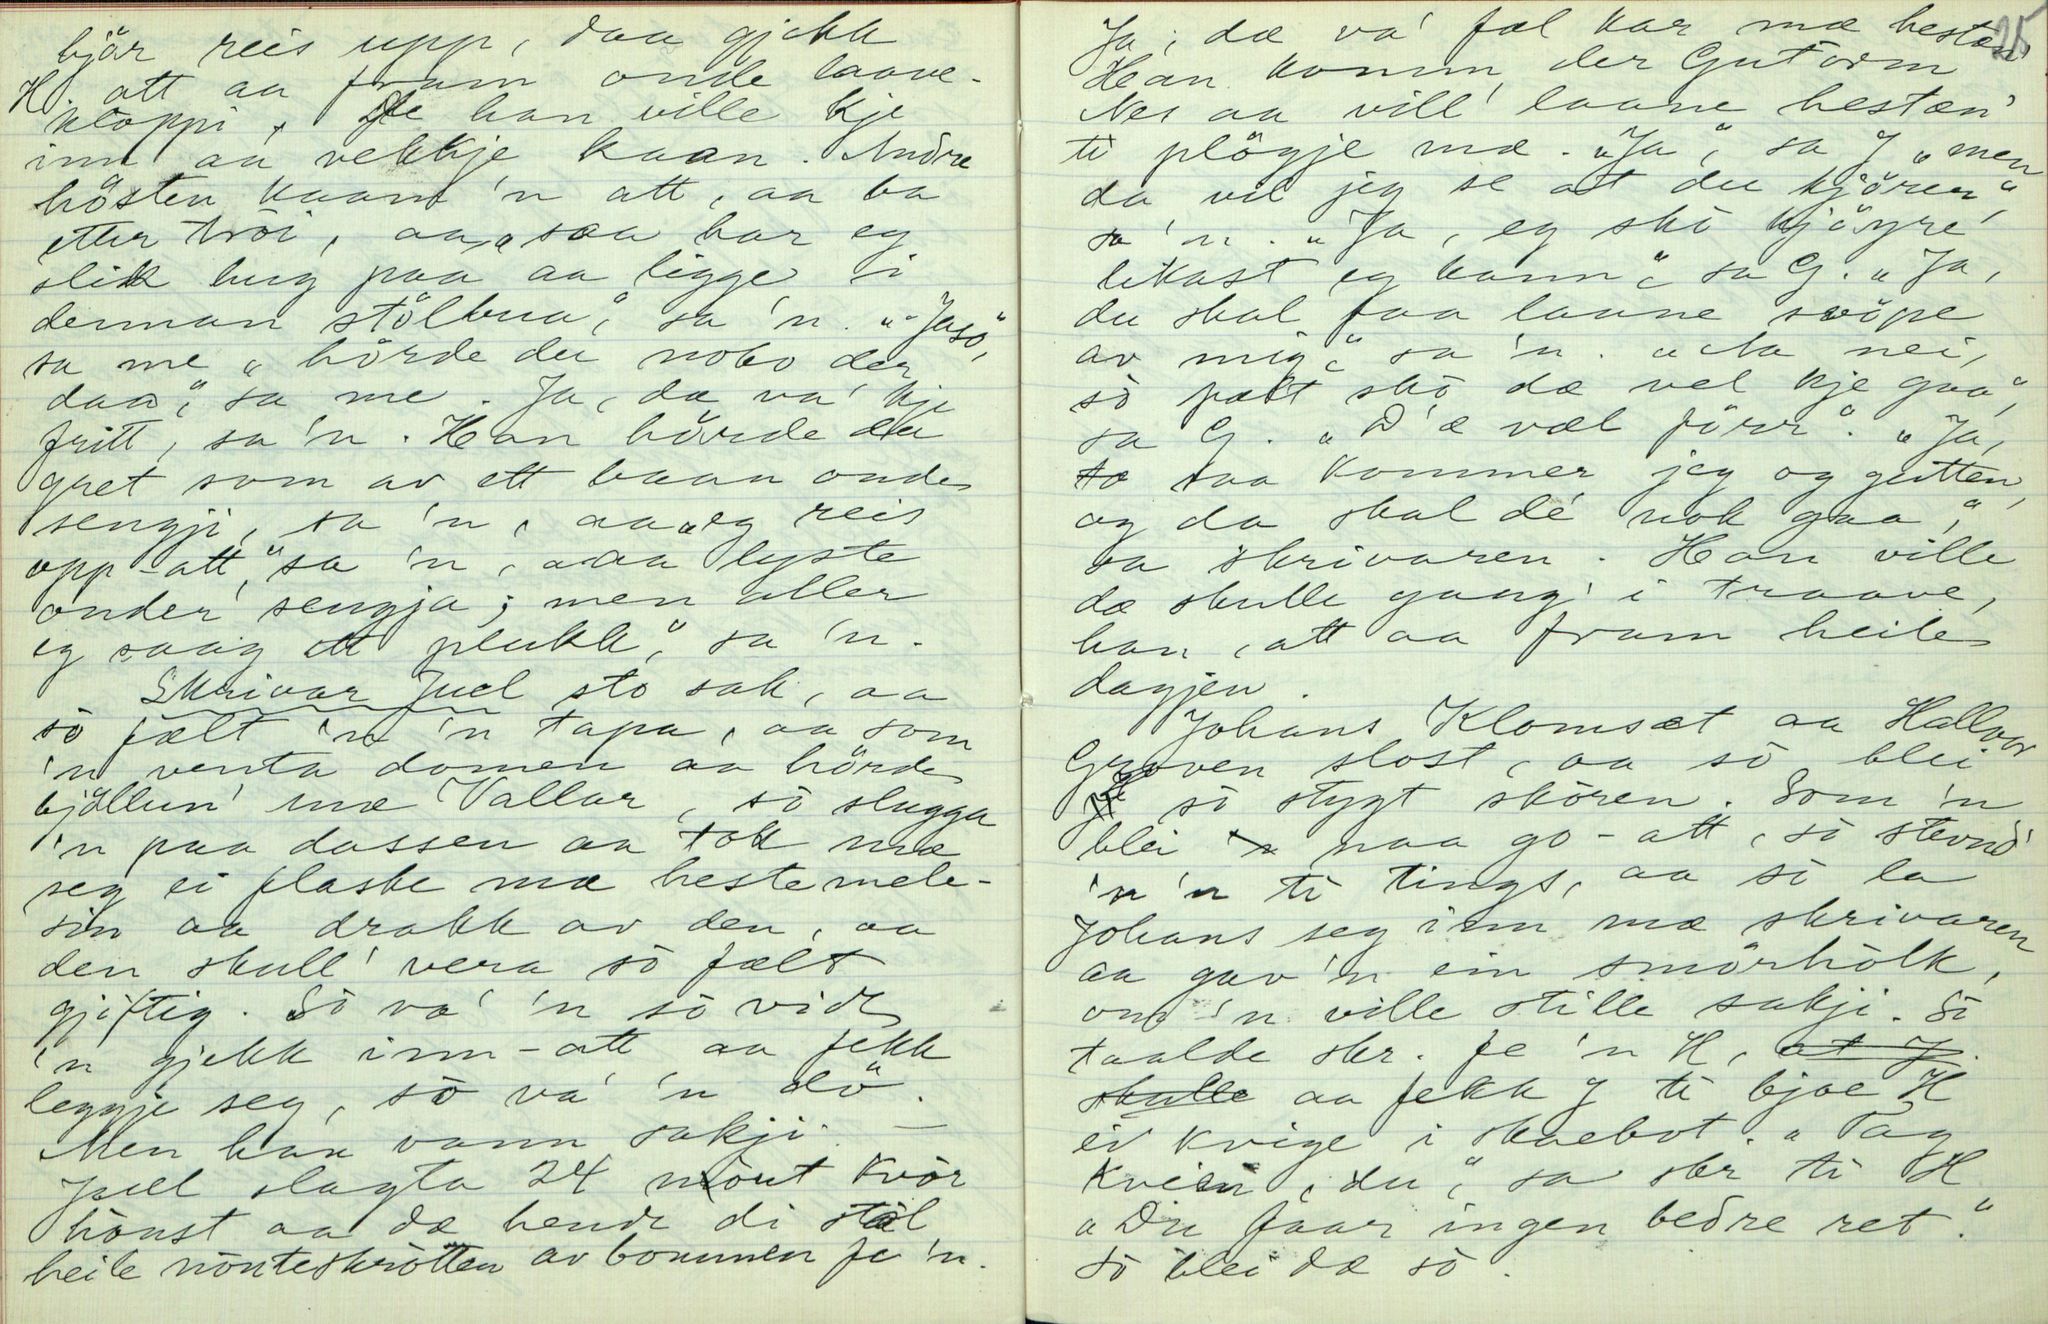 bjär reis upp, daa gjekk
H. att aa fram onde laave-
klöppi, Fe han ville kje
inn aa vekkje kaan. Andre
hösten kaam 'n att, aa ba
etter tröi, aa "saa har eg
slik hug paa aa ligge i
denman stölbua," sa 'n. "Jasö,"
sa me "hörde du noko der
daa," sa me. Ja, dæ va' kje
fritt, sa 'n. Han hörde du
gret som av ett baan onde
sengji, sa 'n, aa "eg reis
opp-att," sa 'n, "aa lyste
onder sengja; men aller
eg saag ett plukk," sa 'n.
Skrivar Juel sto sak, aa
sö fælt 'n 'n tapa, aa som
'n venta domen aa hörde
bjöllun' mæ Vallar, sö slugga
'n paa dassen aa tok mæ
seg ei flaske mæ hestemele-
sin aa drakk av den, aa
den skull' vera sö fælt
gjiftig. Sö va' 'n sö vidt
'n gjekk inn-att aa fekk
leggje seg, sö va' 'n dö.
Men han vann sakji. —
Juel slagta 24 nöut kvör
höust aa dæ hende di stal
heile nöuteskrötten av bommen fe 'n.
25
Ja, dæ va' fæl kar mæ hestæn'
Han komm, der Gutorm
Nes aa vill' laane hestæn'
ti plögje mæ. "Ja," sa J "men
da vil jeg se at du kjörer,"
sa 'n. "Ja, eg skö kjöyre
likast eg kann," sa G. "Ja,
du skal faa laane svöpe
av mig," sa 'n. "Aa nei,
sö fælt skö dæ vel kje gaa,"
sa G. "D'æ væl förr". "Ja,
saa kommer jeg og gutten,
og da skal dé nok gaa,"
sa skrivaren. Han ville
dæ skulle gang' i traave,
han, att aa fram heile
dagjen.
Johans Klomsæt aa Hallvor
Graven slost, aa sö blei
H sö stygt skören. Som 'n
blei naa go-att, sö stevnd'
'n 'n ti tings, aa sö la
Johans seg inn mæ skrivaren
aa gav 'n ein smörhölk,
om 'n ville stille sakji. Sö
taalde skr. fe 'n H, at J.
skulle aa fekk J ti bjoe H
ei kvige i skaebot. "Tag
kvien, du," sa skr ti H
"Du faar ingen bedre ret."
Sö blei dæ sö.